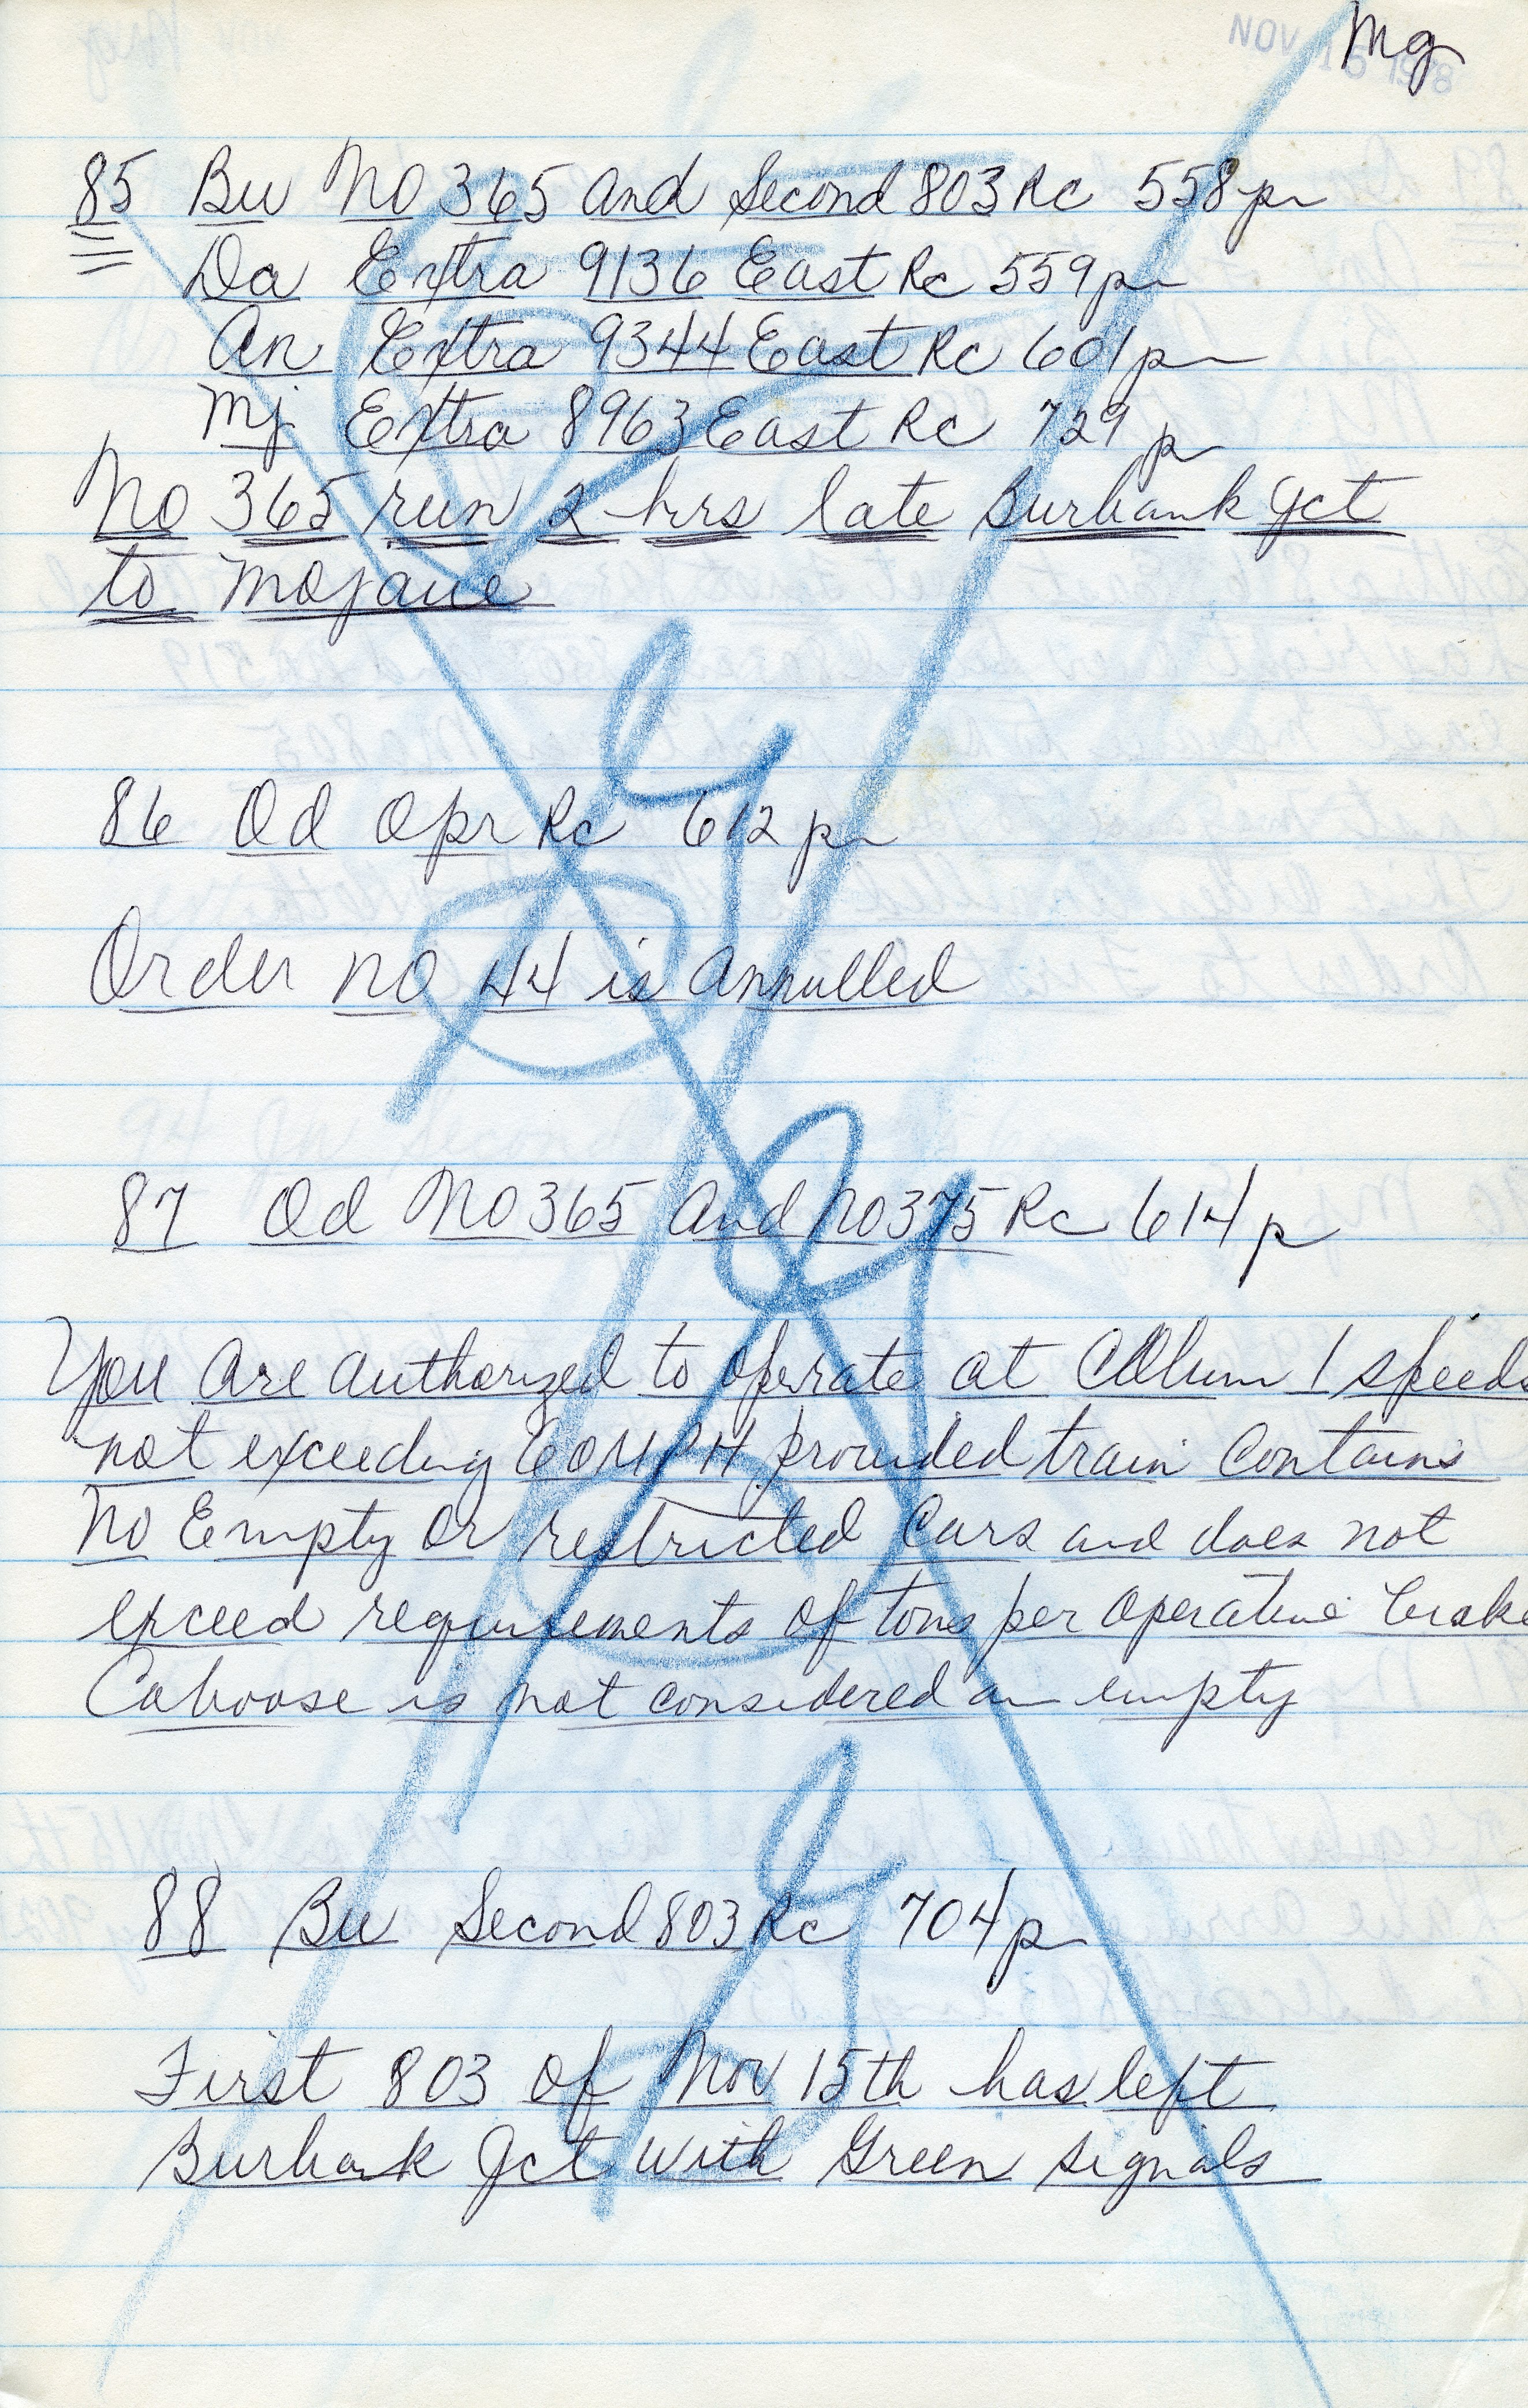 NOV 15 1978
Mg
85 Bu No 365 and Second 803 Rc 558 pm
Da Extra 9136 East Rc 559 pm
An Extra 9344 East Rc 601 pm
Mj Extra 8963 East Rc 729 pm
No 365 run 2 hrs late Burbank Jct
to Mojave
86 Od Opr Rc 612 pm
Order no 44 is annulled
87 Od No 365 and No 375 Rc 614 p
You are authorized to operate at Collum 1 speeds
not exceeding 60 MPH provided train contains
No Empty or restricted cars and does not
exceed requirements of tons per operative brake
Caboose is not considered an empty
88 Bu Second 803 Rc 704 pm
First 803 of Nov 15th has left
Burbank Jct with Green signals